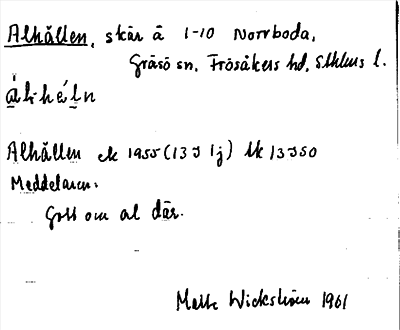 Alhällen, skär å 1-10 Norrboda,
Gräsö sn, Frösåkers hd, Sthlms l.
Alhällen ek 1955 (13J 1j) tk 13J50
Meddelaren:
Gott om al där.
Mats Wickström 1961